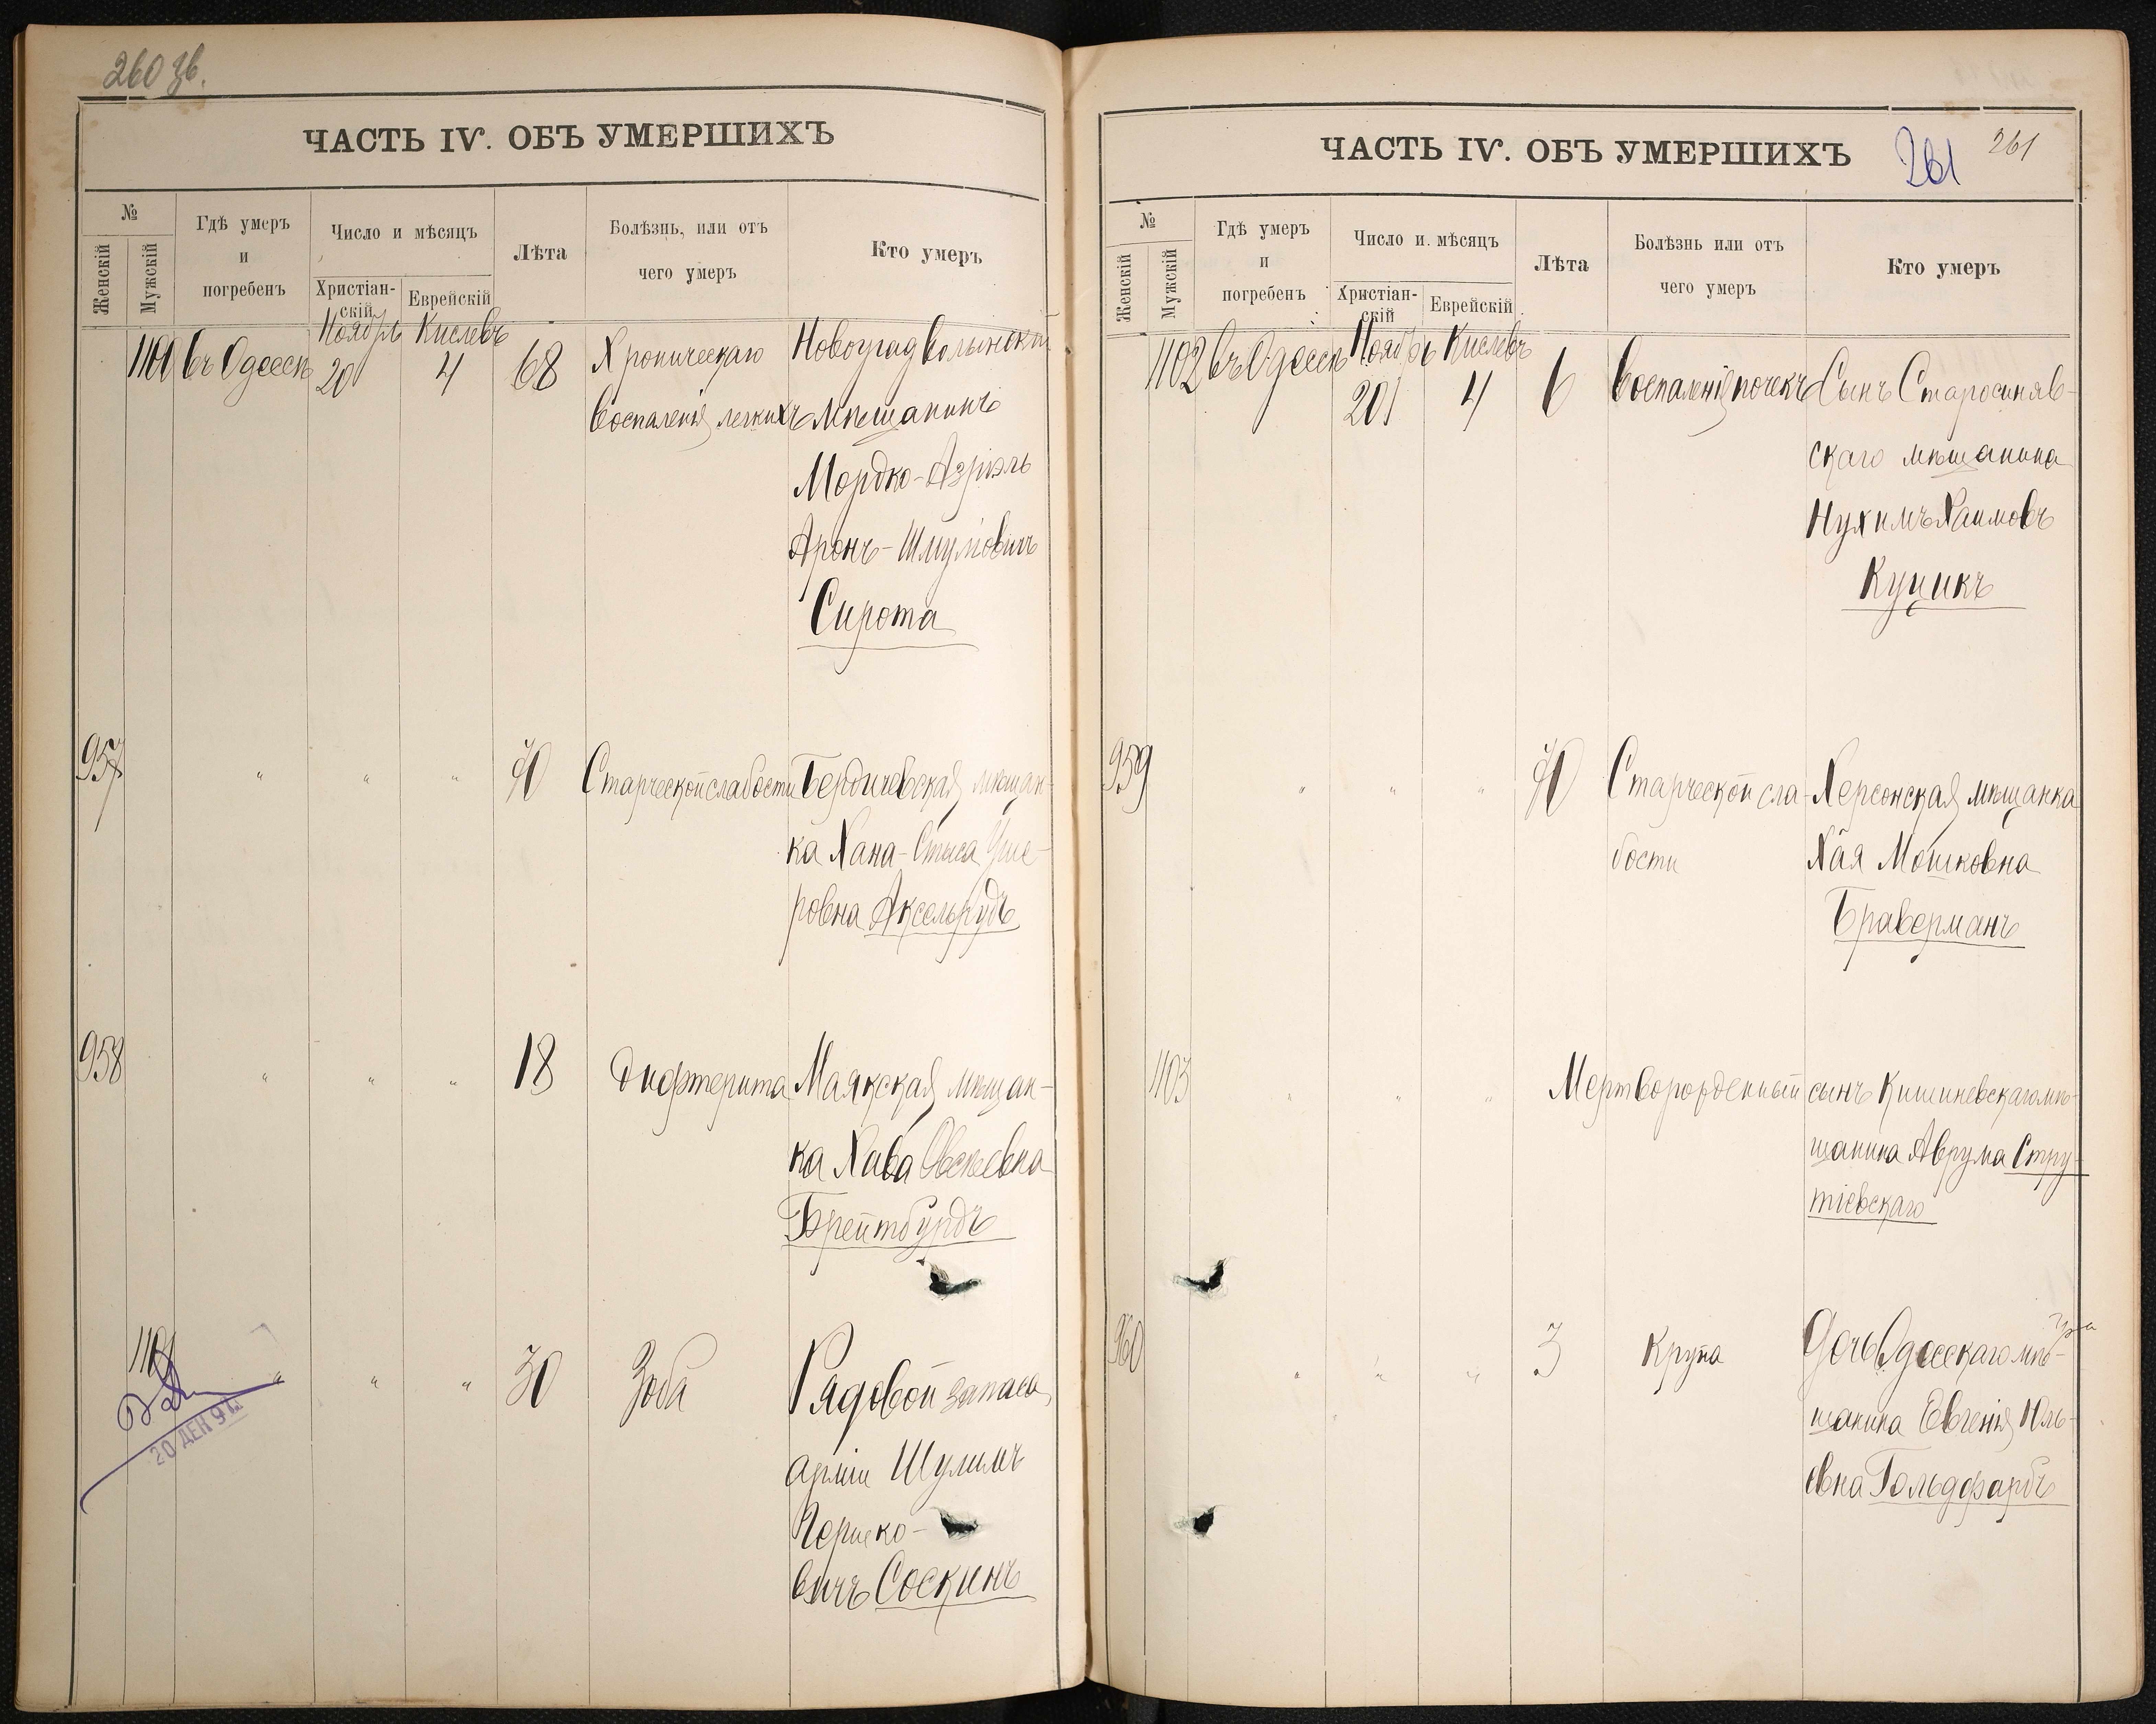 260 зв.
ЧАСТЬ IV. ОБЪ УМЕРШИХЪ
№
Женскій
Мужскій
Гдѣ умеръ
и
погребенъ
Число и мѣсяцъ
Христіан-
скій
Еврейскій
Лѣта
Болѣзнь, или отъ
чего умеръ
Кто умеръ
Ноябрь Кислевъ
1100 въ Одессѣ 20 4 68 Хроническаго Новоградволынскій
воспаленія легкихъ мѣщанинъ
Мордко-Азріэль
Аронъ-Шмулевичъ
Сирота
957 " " " 70 Старческой слабости Бердичевская мѣщан-
ка Хана- Уше-
ровна Аксельрудъ
958 " " " 18 Дифтерита Маякская мѣщан-
ка Хава Овсѣевна
Брейтбурдъ
1101 " " " 30 Зоба Рядовой запаса
арміи Шулимъ
Гершко-
вичъ Соскинъ
20 ДЕК 91
ЧАСТЬ IV. ОБЪ УМЕРШИХЪ
261 261
№
Женскій
Мужскій
Гдѣ умеръ
и
погребенъ
Число и мѣсяцъ
Христіан-
скій
Еврейскій
Лѣта
Болѣзнь или отъ
чего умеръ
Кто умеръ
Ноябрь Кислевъ
1102 въ Одессѣ 20 4 6 Воспаленія почекъ Сынъ Старосиняв-
скаго мѣщанина
Нухимъ Хаимовъ
Куцикъ
959 " " " 70 Старческой сла- Херсонская мѣщанка
бости Хая Мошковна
Браверманъ
1103 " " " Мертворожденный сынъ Кишиневскаго мѣ-
щанина Аврума Стру-
тіевскаго
960 " " " 3 Крупа Дочь Одесскаго мѣ-
щанина Евгенія Юль-
евна Гольдфарбъ